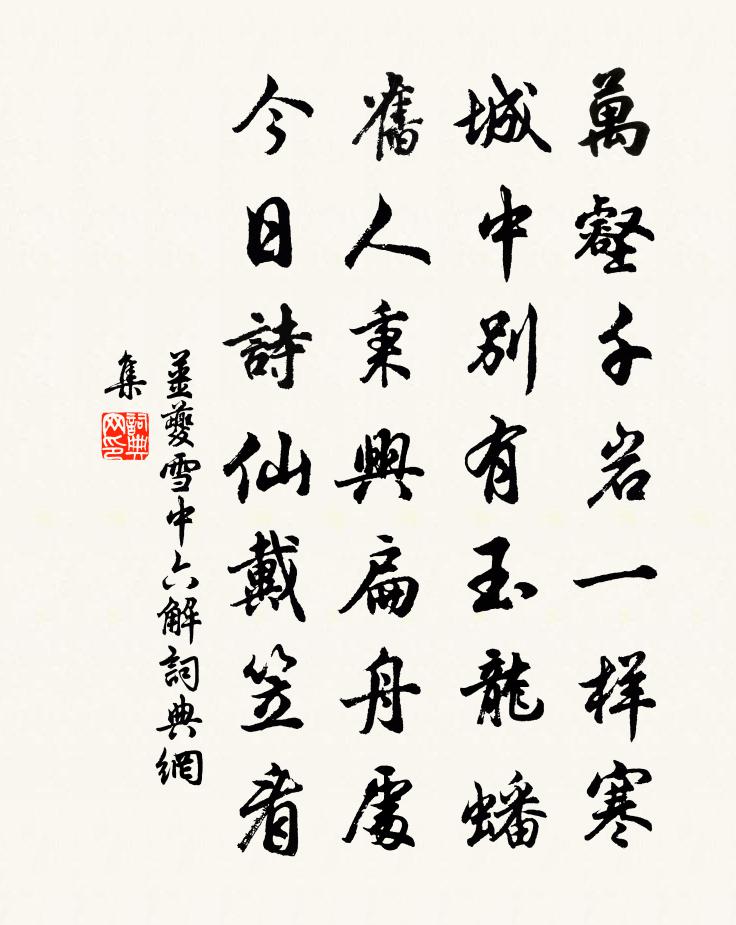 萬壑千岩一样寒
城中別有玉龍蟠
舊人秉興扁舟處
今日詩仙戴笠看
薑夔雪中六解詞典網
集
詞典
网印